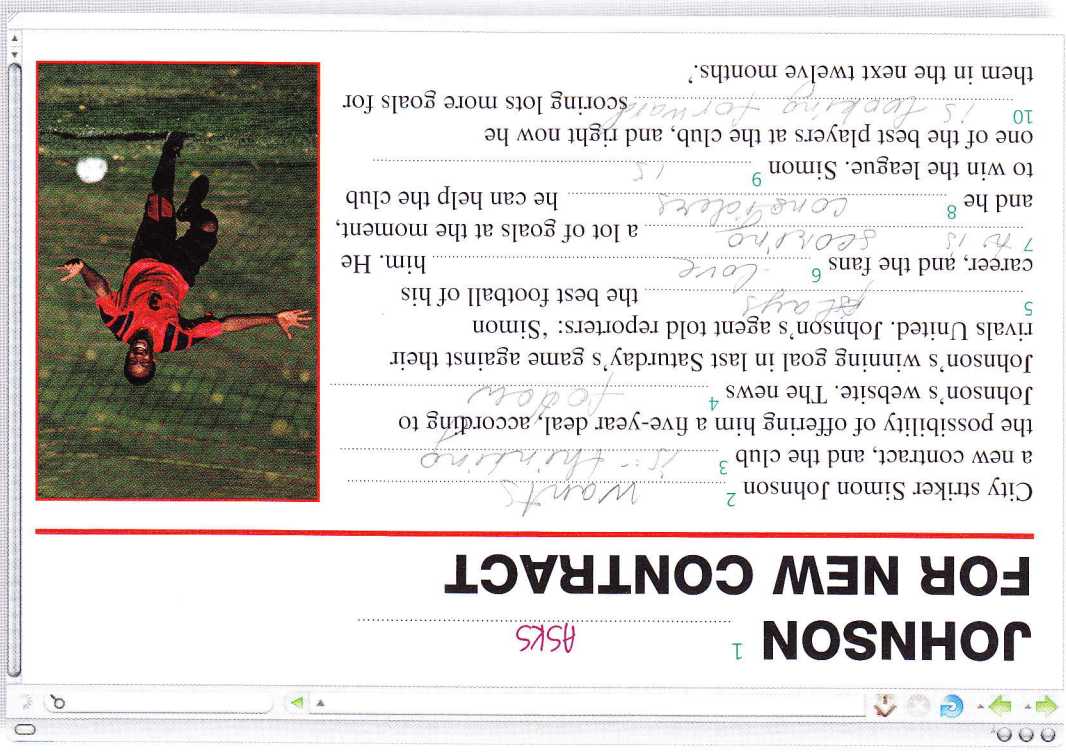 JOHNSON 1 ASKS
FOR NEW CONTRACT
City striker Simon Johnson 2 wants
a new contract, and the club 3 is thinking
the possibility of offering him a five-year deal, according to
Johnson's website. The news 4
Johnson's winning goal in last Saturday's game against their
rivals United. Johnson's agent told reporters: 'Simon
5 plays the best football of his
career, and the fans 6 love him. He
7 is scoring a lot of goals at the moment,
and he 8 considers he can help the club
to win the league. Simon 9 is
one of the best players at the club, and right now he
10 is looking forward scoring lots more goals for
them in the next twelve months.'
3